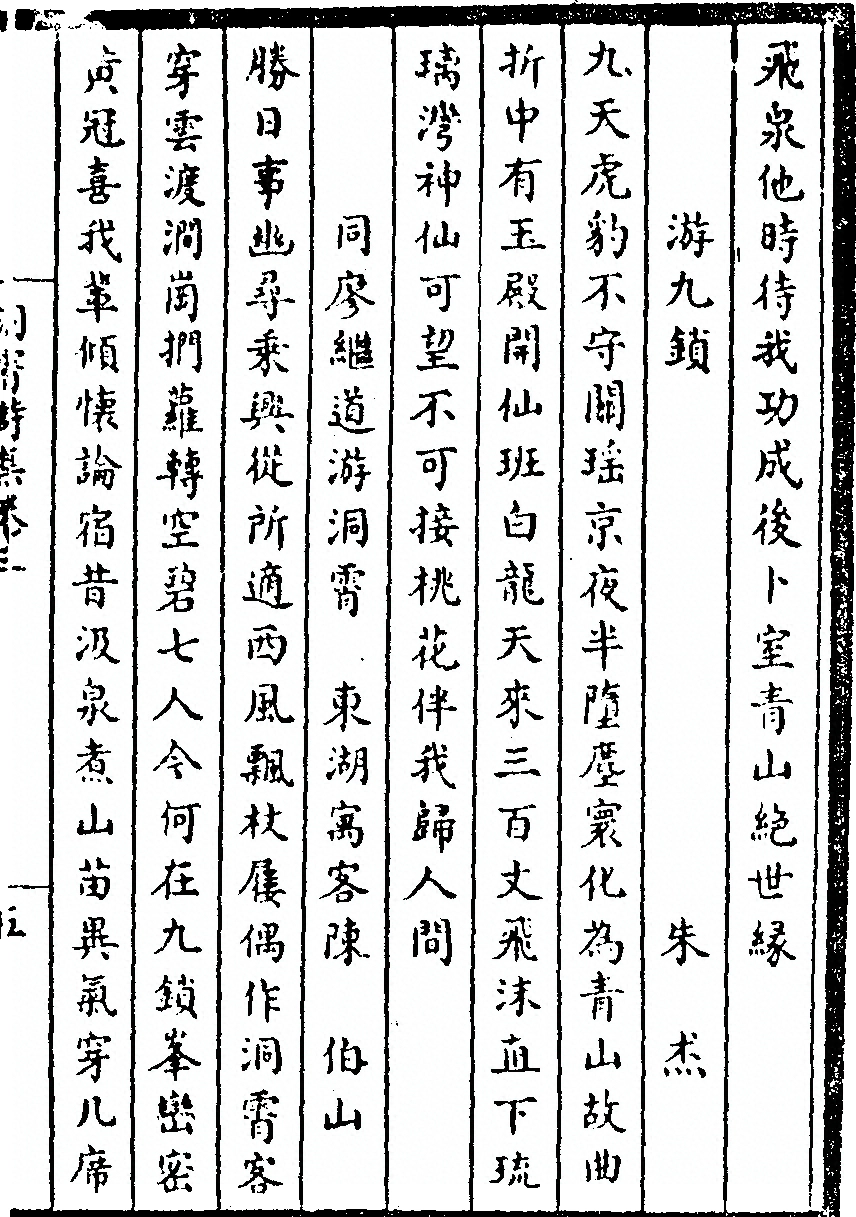 飛泉他時待我功成後卜室青山絶世緣
游九鎖 朱杰
九天虎豹不守關瑶京夜半墮塵寰化為青山故曲
折中有玉殿開仙班白龍天來三百丈飛沫直下琉
璃灣神仙可望不可接桃花伴我歸人間
同廖繼道游洞霄 東湖寓客陳伯山
勝日事幽尋乘興從所適西風飄杖屨偶作洞霄客
穿雲渡澗崗捫蘿轉空碧七人今何在九鎖峯巒密
黄冠喜我輩傾懷論宿昔汲泉煮山苗異氣穿几席
洞霄詩集卷三